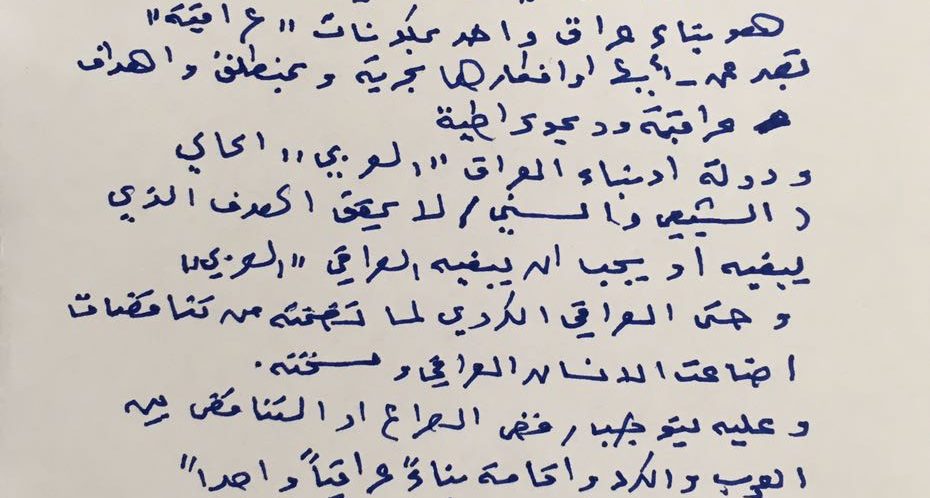 هو بناء عراق واحد بمكونات "عراقية"
تعبر عن أفكارها بحرية وبمنطلق واهداف
عراقية وديموقراطية
ودولة ابناء العراق "العربي" الحالي
(الشيعي والسني) لا يحقق الهدف الذي
يبغيه أو يجب ان يبغيه العراقي "العربي"
و حتى العراقي الكردي لما تضمنته من تناقضات
اضاعت الانسان العراقي و
وعليه يتوجب رفض الصراع او التناقض بين
العرب والكرد واقامة بناءً عراقياً واحداً"